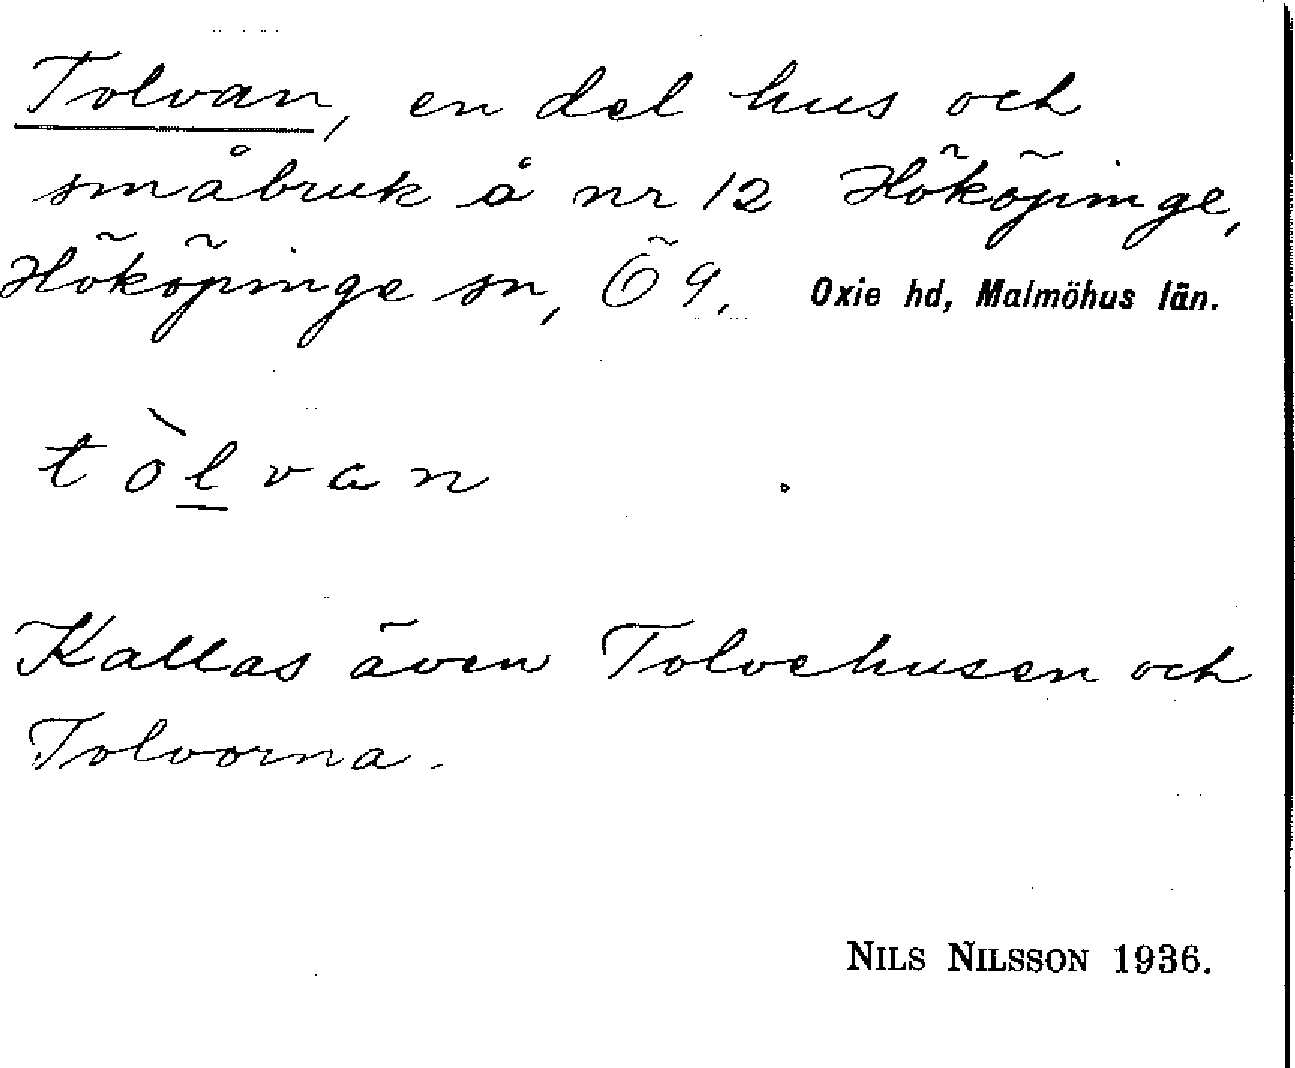 Tolvan, en del hus och
småbruk å nr 12 Hököpinge,
Hököpinge sn, Ö 9. Oxie hd, Malmöhus län.
tòlvan
Kallas även Tolvehusen och
Tolvorna.
NILS NILSSON 1936.